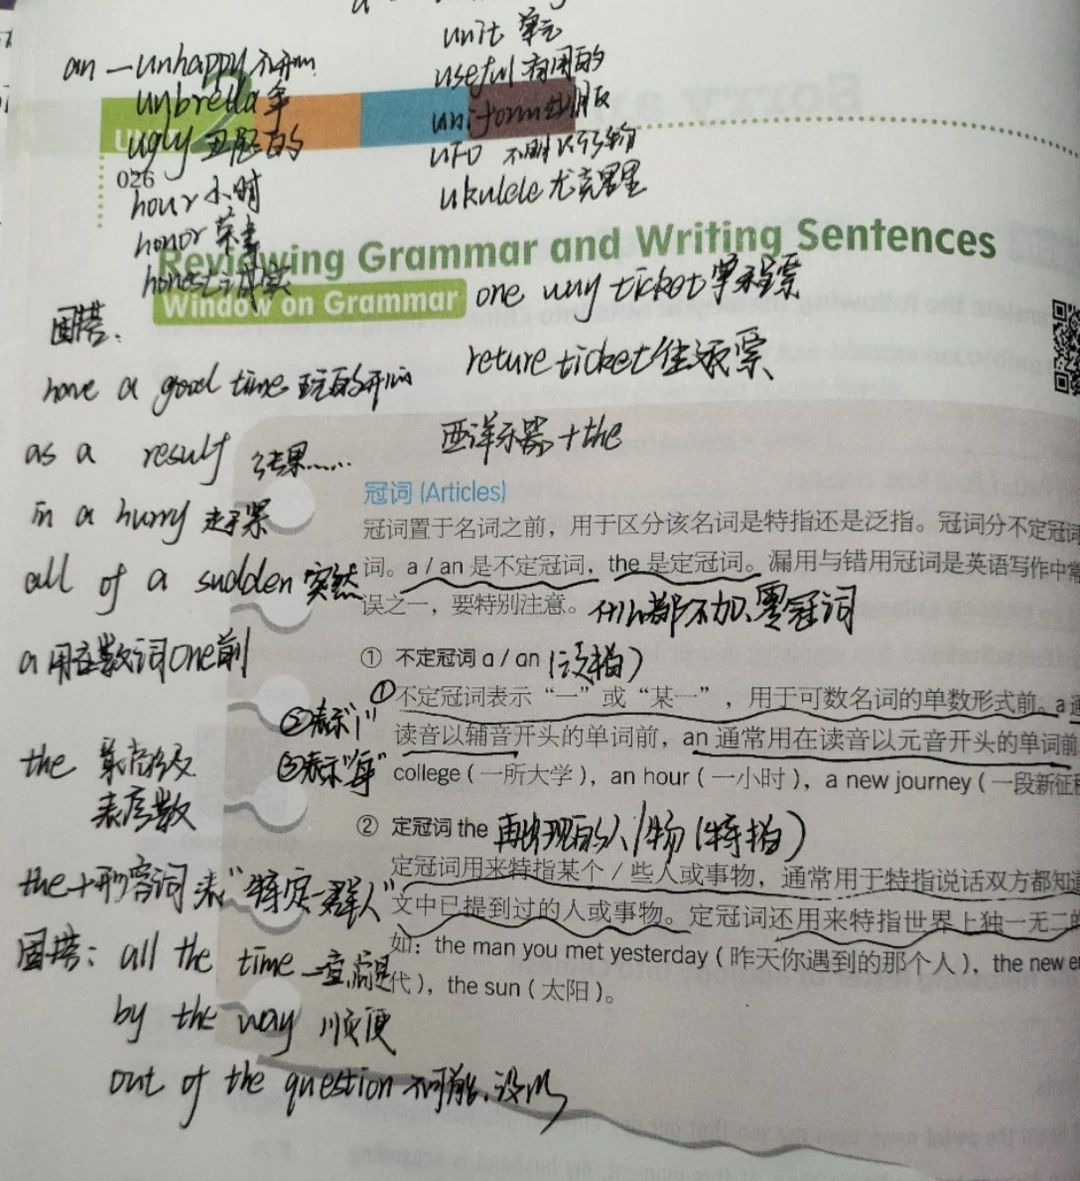 unit 单元
an — unhappy 不开心
useful 有用的
unbrella 伞
uniform 制服
ugly 丑陋的
UFO 不明飞行物
026
hour 小时
ukulele 尤克里里
honor 荣誉
Reviewing Grammar and Writing Sentences
honest 诚实
Window on Grammar
one way ticket 单程票
固搭：
reture ticket 往返票
have a good time 玩的开心
西洋乐器 + the
as a result 结果……
冠词 (Articles)
in a hurry 赶紧
冠词置于名词之前，用于区分该名词是特指还是泛指。冠词分不定冠词
all of a sudden 突然
词。a / an 是不定冠词，the 是定冠词。漏用与错用冠词是英语写作中常
误之一，要特别注意。 什么都不加、零冠词
a 用在数词one前
① 不定冠词 a / an (泛指)
①不定冠词表示“一”或“某一”，用于可数名词的单数形式前。a 通
②表示“1”
读音以辅音开头的单词前，an 通常用在读音以元音开头的单词前
the 最高级
③表示“每”
college（一所大学），an hour（一小时），a new journey（一段新征程
表序数
② 定冠词 the 再出现的人/物 (特指)
定冠词用来特指某个 / 些人或事物，通常用于特指说话双方都知道
the+形容词 表“特定一群人”
文中已提到过的人或事物。定冠词还用来特指世界上独一无二的
固搭：all the time 一直,总是
如：the man you met yesterday（昨天你遇到的那个人），the new er
代），the sun（太阳）。
by the way 顺便
out of the question 不可能、没门